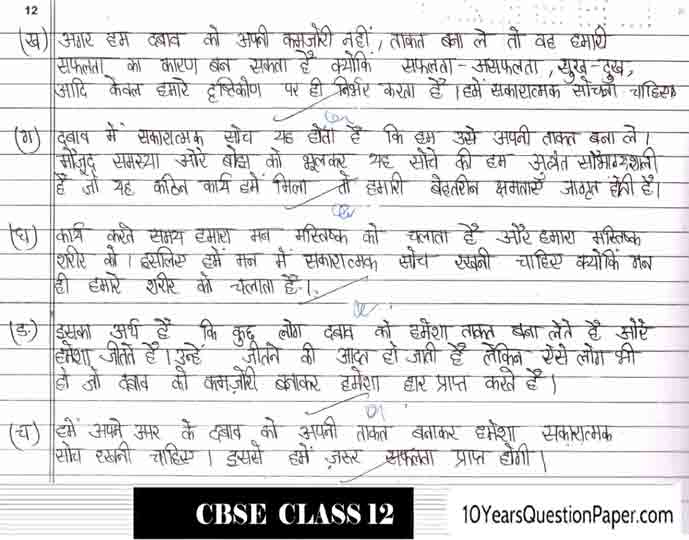 12
(ख) अगर हम दबाव को अपनी कमजोरी नहीं, ताकत बना ले तो वह हमारी
सफलता का कारण बन सकता है क्योंकि सफलता-असफलता, सुख-दुख,
आदि केवल हमारे दृष्टिकोण पर ही निर्भर करता है। हमें सकारात्मक सोचना चाहिए।
(ग) दबाव में सकारात्मक सोच यह होती है कि हम उसे अपनी ताकत बना ले।
मौजूद समस्या और बोझ को भूलकर यह सोचे की हम अत्यंत सौभाग्यशाली
है जो यह कठिन कार्य हमें मिला तो हमारी बेहतरीन क्षमताएँ जागृत होती है।
(घ) कार्य करते समय हमारा मन मस्तिष्क को चलाता है और हमारा मस्तिष्क
शरीर को। इसलिए हमें मन में सकारात्मक सोच रखनी चाहिए क्योंकि मन
ही हमारे शरीर को चलाता है।
(ङ) इसका अर्थ है कि कुछ लोग दबाव को हमेशा ताकत बना लेते है और
हमेशा जीतते है। उन्हें जीतने की आदत हो जाती है लेकिन ऐसे लोग भी
हो जो दबाव को कमज़ोरी बनाकर हमेशा हार प्राप्त करते है।
(च) हमें अपने ऊपर के दबाव को अपनी ताकत बनाकर हमेशा सकारात्मक
सोच रखनी चाहिए। इससे हमें ज़रूर सफलता प्राप्त होगी।
CBSE CLASS 12
10YearsQuestionPaper.com